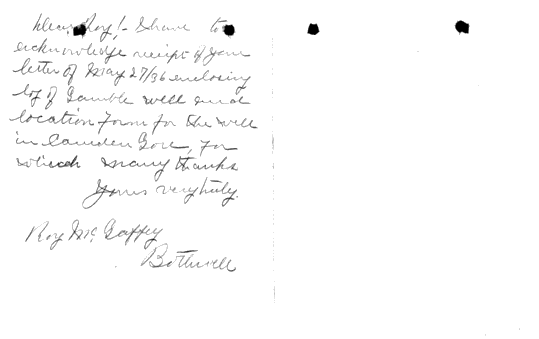 Dear Roy! - I have to
acknowledge receipt of your
letter of May 27/36 enclosing
log of Gamble well and
location form for the well
in Camden Gore, for
which many thanks
Yours very truly.
Roy McGaffey
Bothwell